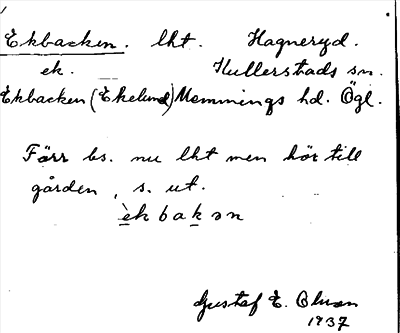 Ekbacken. lht. Hagneryd.
ek. Kullerstads sn.
Ekbacken (Ekelund) Memmings hd. Ögl.
Förr bs. nu lht men hör till
gården, s. ut.
èkbakən
Gustaf E. Olsson
1937